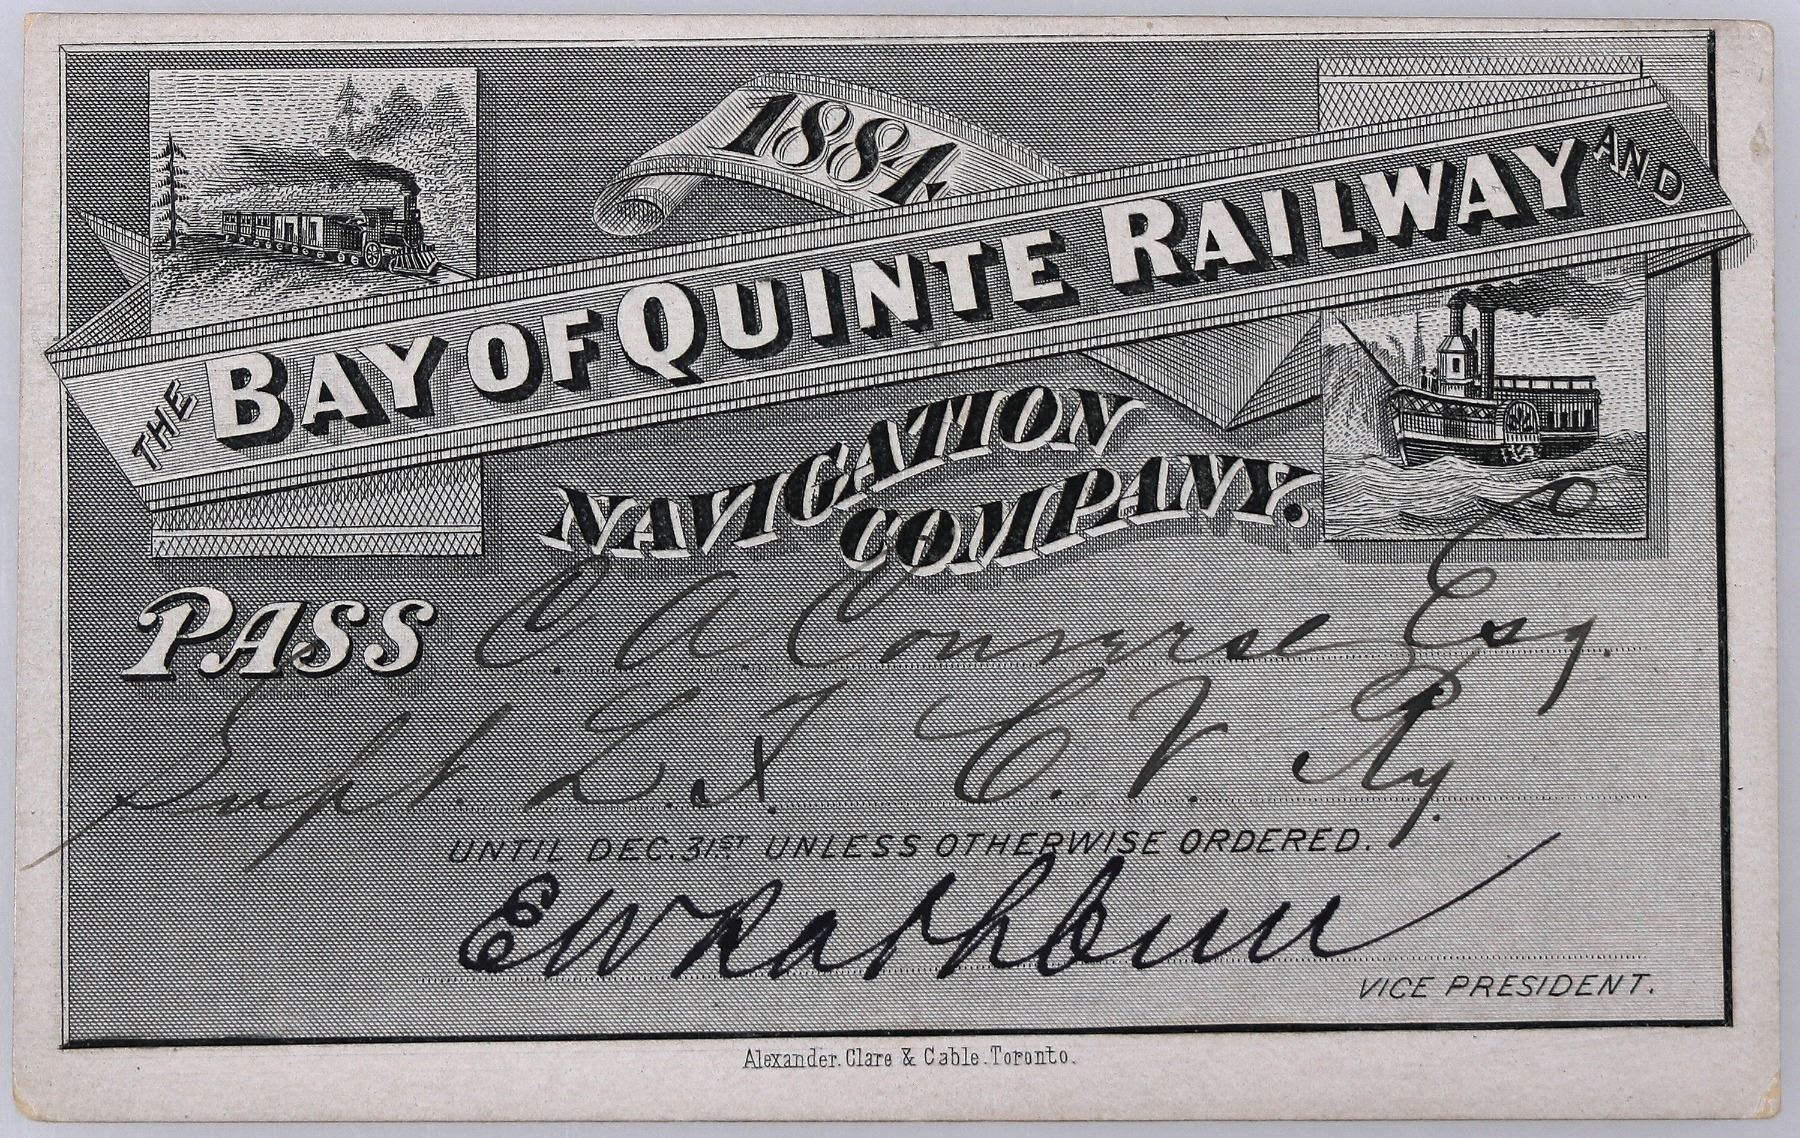 1884.
THE BAY OF QUINTE RAILWAY AND
NAVIGATION
COMPANY.
PASS C. A. Converse Esq.
Supt. L. & C. V. Ry.
UNTIL DEC. 31ST UNLESS OTHERWISE ORDERED.
EWRathbun
VICE PRESIDENT.
Alexander. Clare & Cable. Toronto.